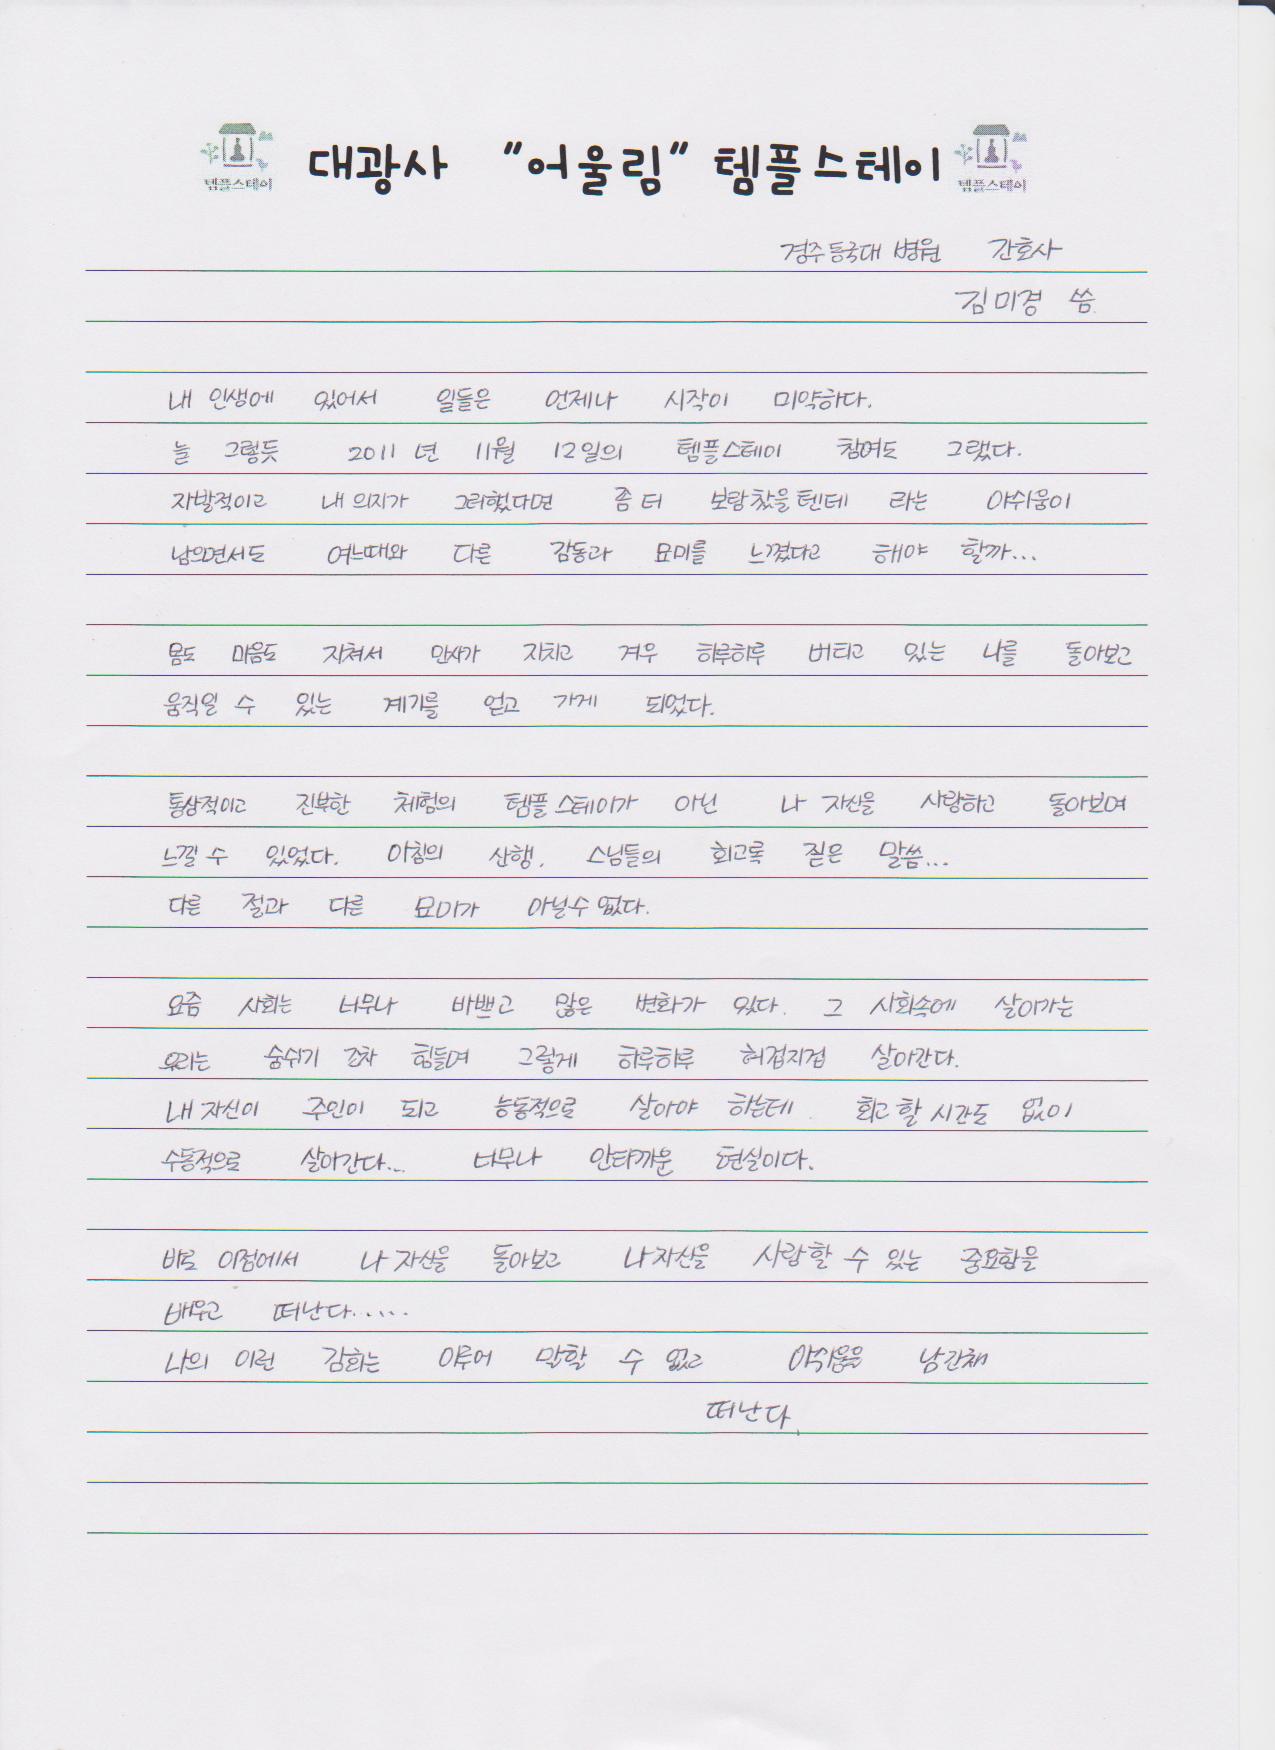 템플스테이
대광사 "어울림" 템플스테이
템플스테이
경주동국대 병원 간호사
김미경 씀.
내 인생에 있어서 일들은 언제나 시작이 미약하다.
늘 그렇듯 2011년 11월 12일의 템플스테이 참여도 그랬다.
자발적이고 내 의지가 그러했다면 좀 더 보람찼을텐데 라는 아쉬움이
남으면서도 여느때와 다른 감동과 묘미를 느꼈다고 해야 할까...
몸도 마음도 지쳐서 만사가 지치고 겨우 하루하루 버티고 있는 나를 돌아보고
움직일 수 있는 계기를 얻고 가게 되었다.
통상적이고 진부한 체험의 템플스테이가 아닌 나 자신을 사랑하고 돌아보며
느낄 수 있었다. 아침의 산행, 스님들의 회고록 짙은 말씀...
다른 절과 다른 묘미가 아닐수 없다.
요즘 사회는 너무나 바쁘고 많은 변화가 있다. 그 사회속에 살아가는
우리는 숨쉬기 조차 힘들며 그렇게 하루하루 허겁지겁 살아간다.
내 자신이 주인이 되고 능동적으로 살아야 하는데 회고 할 시간도 없이
수동적으로 살아간다... 너무나 안타까운 현실이다.
바로 이점에서 나 자신을 돌아보고 나 자신을 사랑할 수 있는 중요함을
배우고 떠난다......
나의 이런 감회는 이루어 말할 수 없고 아쉬움을 남긴채
떠난다.